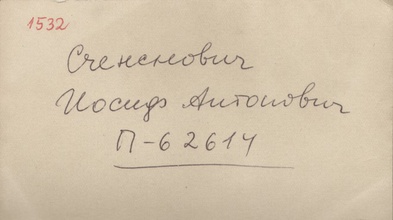 1532
Сченснович
Иосиф Антонович
П-62614